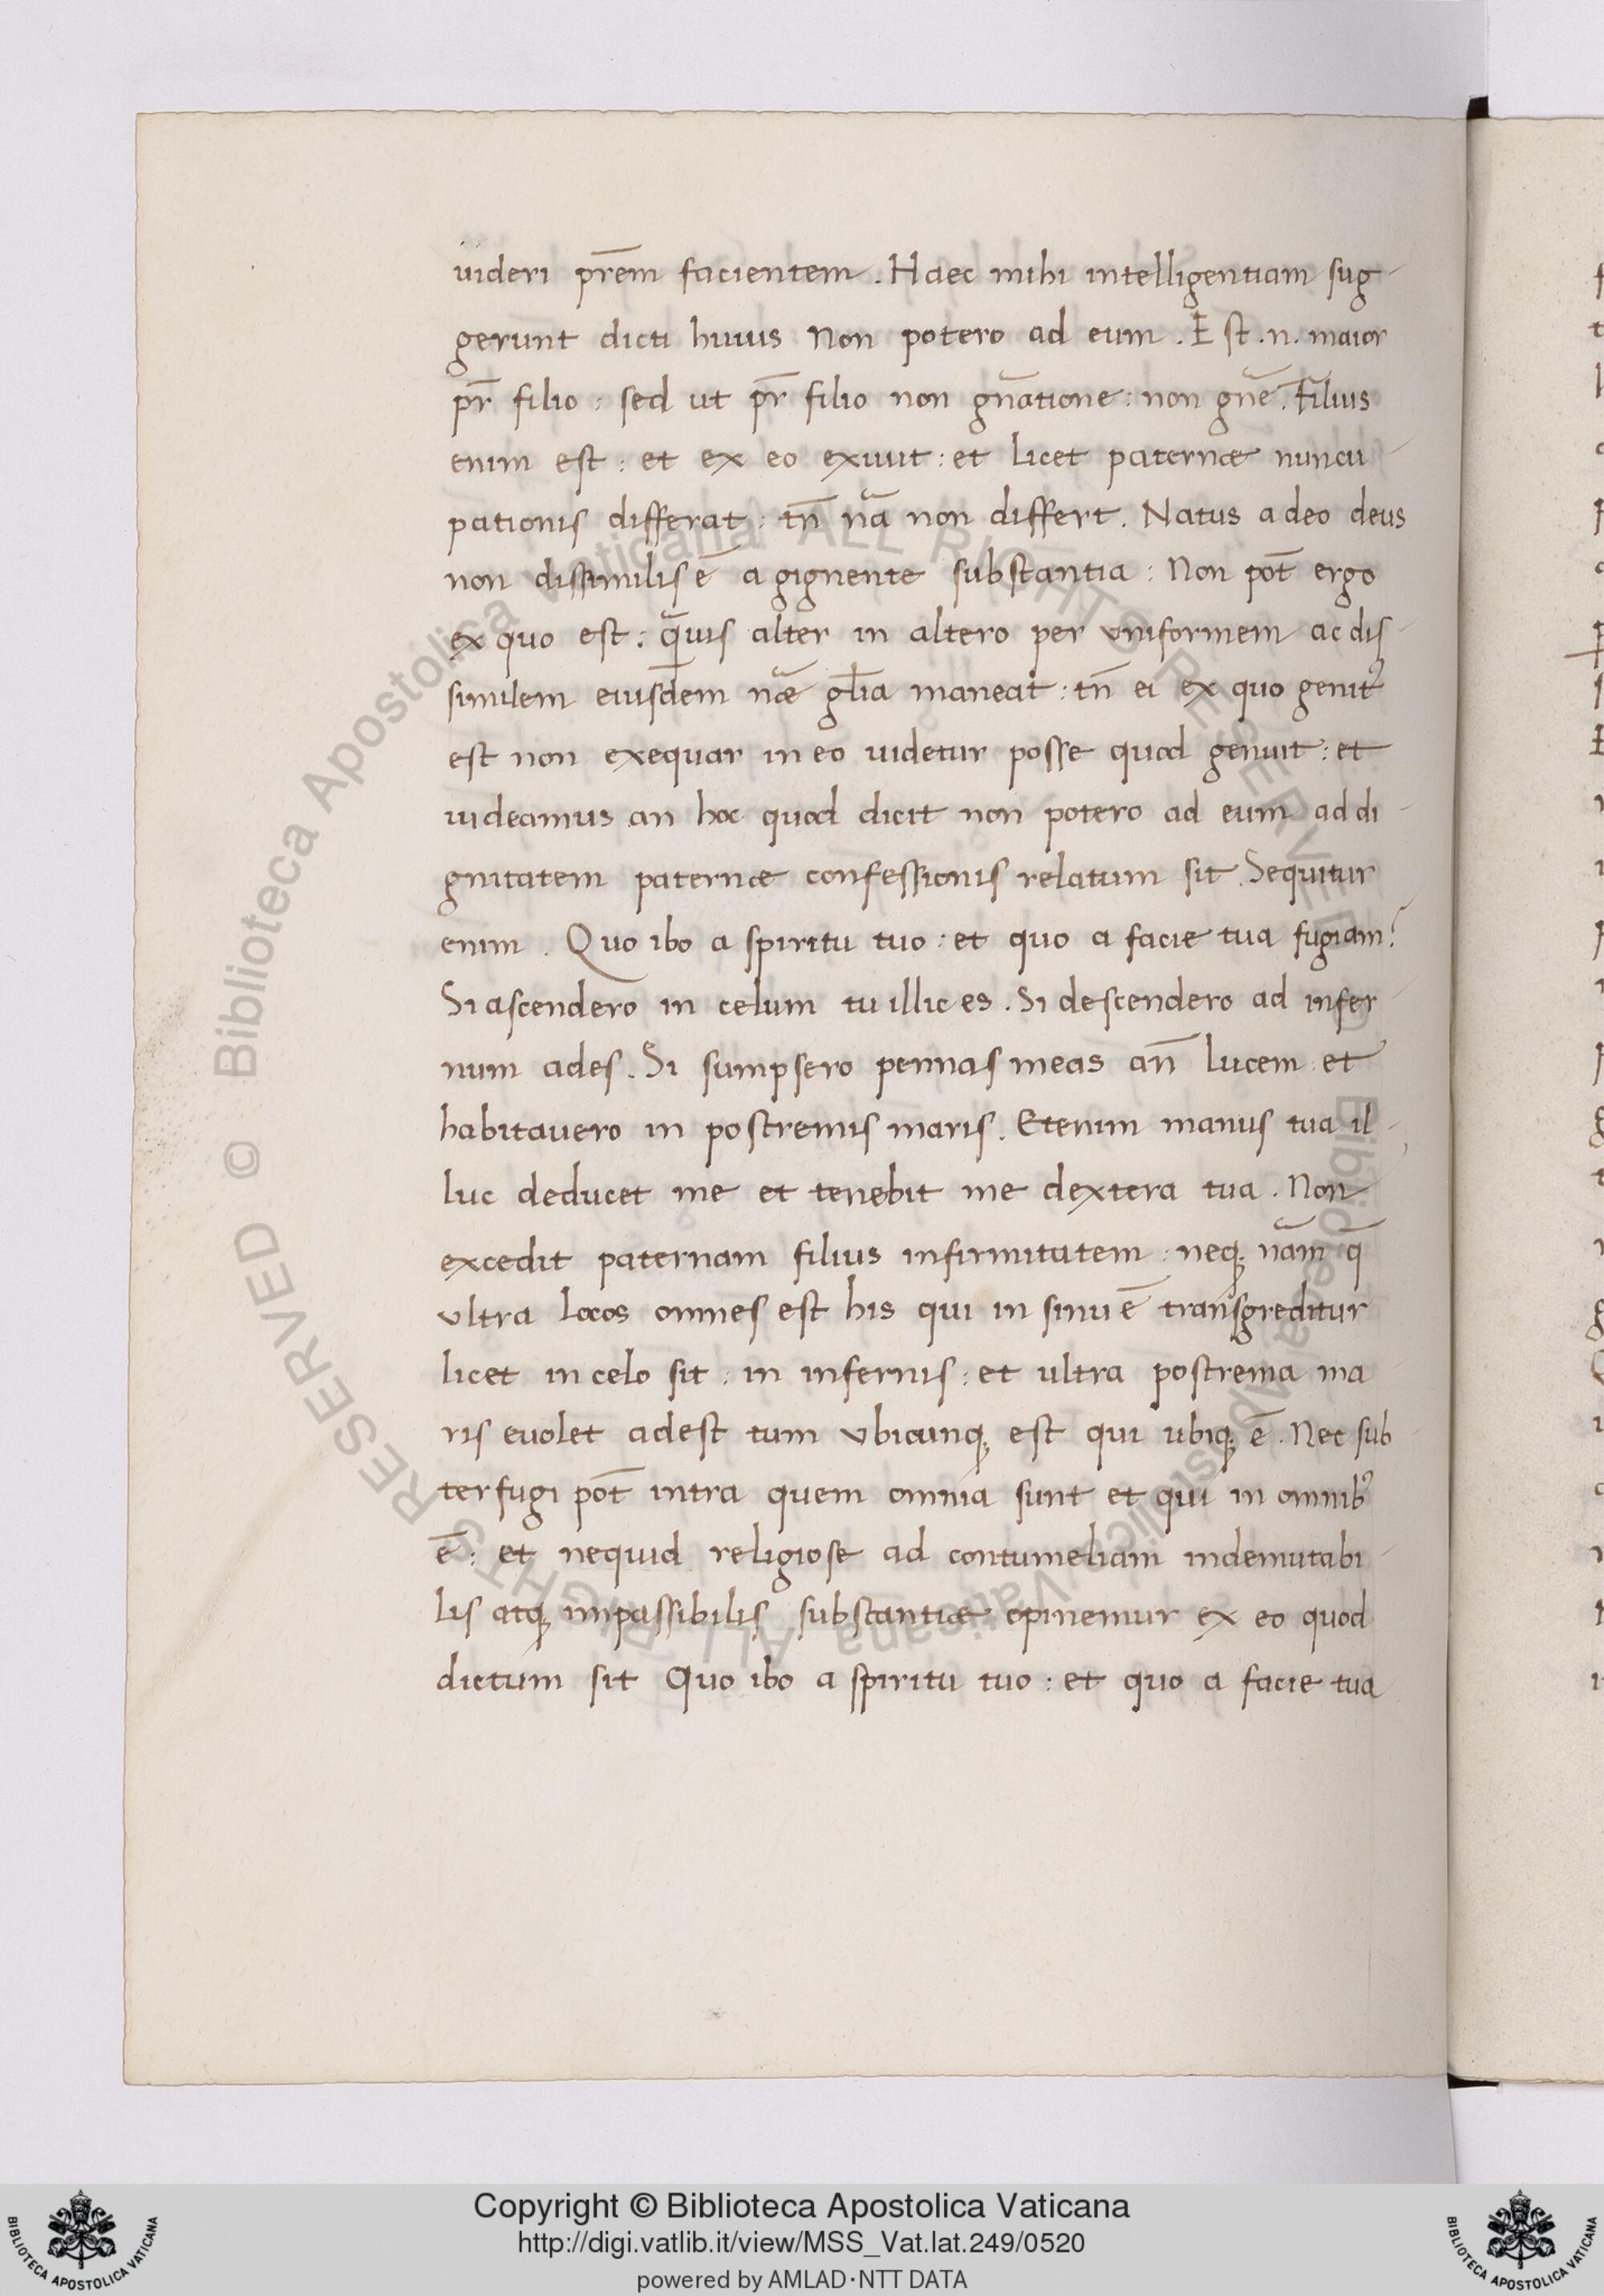 uideri pr̄em facientem. Haec mihi intelligentiam sug-
gerunt dicti huius Non potero ad eum. Est .n. maior
pr̄ filio: sed ut pr̄ filio non gn̄atione: non gn̄e. Filius
enim est: et ex eo exiuit: et licet paternæ nuncu-
pationis differat: tn̄ nā non differt. Natus a deo deus
non dissimilis ē a gignente substantia: Non pōt ergo
ex quo est: q̄uis alter in altero per uniformem ac dis-
similem eiusdem nāe gl̄ia maneat: tn̄ ei ex quo genitꝰ
est non exequar in eo uidetur posse quod genuit: et
uideamus an hoc quod dicit non potero ad eum ad di-
gnitatem paternæ confessionis relatum sit. Sequitur
enim. Quo ibo a spiritu tuo: et quo a facie tua fugiam?
Si ascendero in celum tu illic es. Si descendero ad infer-
num ades. Si sumpsero pennas meas an̄ lucem: et
habitauero in postremis maris. Etenim manus tua il-
luc deducet me et tenebit me dextera tua. Non
excedit paternam filius infirmitatem: neq; nām q̄
ultra locos omnes est his qui in sinu ē transgreditur
licet in celo sit: in infernis: et ultra postrema ma
ris euolet adest tum ubicunq; est qui ubiq; ē. Nec sub-
terfugi pōt intra quem omnia sunt et qui in omnibꝰ
ē: et nequid religiose ad contumeliam indemutabi-
lis atq; impassibilis substantiæ opinemur ex eo quod
dictum sit Quo ibo a spiritu tuo: et quo a facie tua
© Biblioteca Apostolica Vaticana ALL RIGHTS RESERVED
© Biblioteca Apostolica Vaticana ALL RIGHTS RESERVED
Copyright © Biblioteca Apostolica Vaticana
http://digi.vatlib.it/view/MSS_Vat.lat.249/0520
powered by AMLAD·NTT DATA
BIBLIOTECA APOSTOLICA VATICANA
BIBLIOTECA APOSTOLICA VATICANA